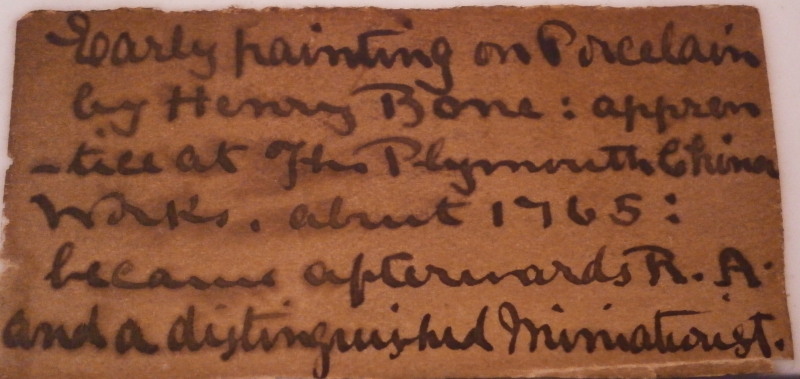 Early painting on Porcelain
by Henry Bone : appren
-tice at The Plymouth China
Works, about 1765 :
became afterwards R. A.
and a distinguished Miniaturist.